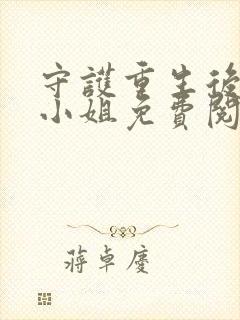 守護重生後
小姐免費閱
蔣卓慶